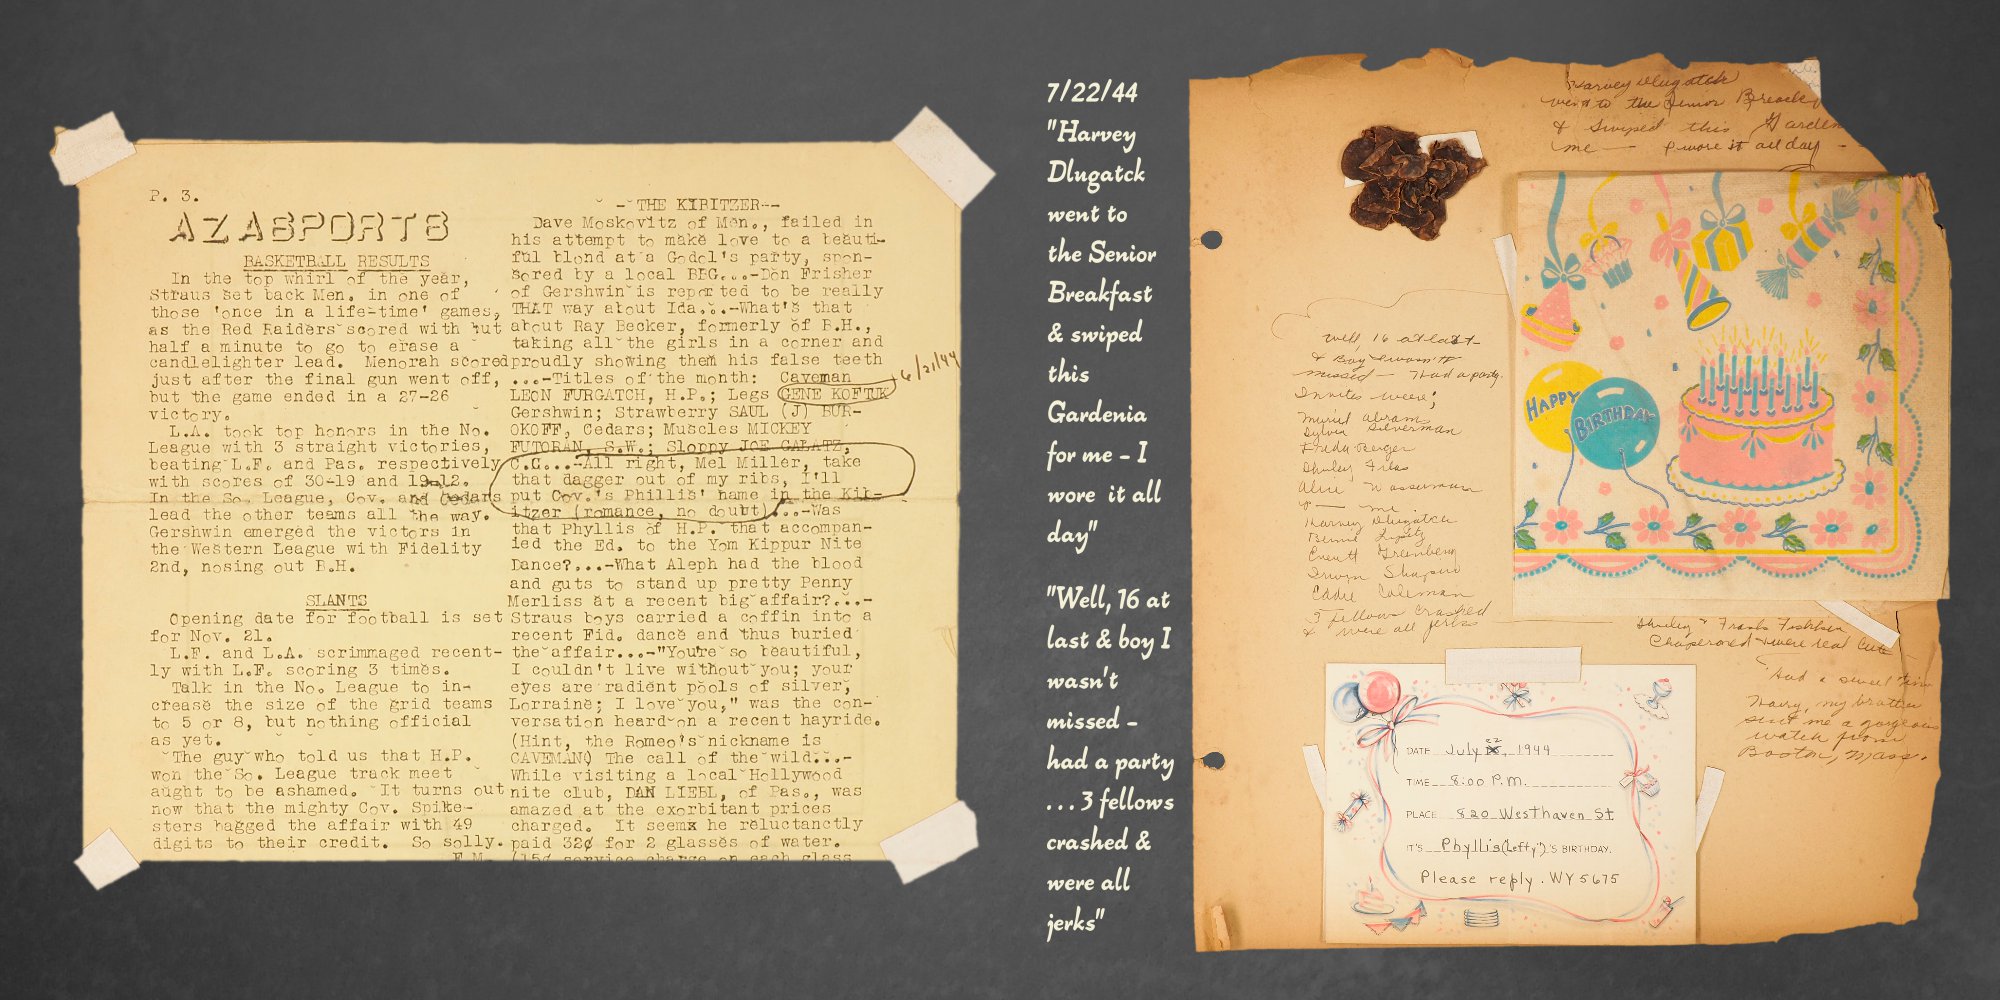 P. 3.
AZASPORTS
BASKETBALL RESULTS
In the top whirl of the year,
Straus set back Men. in one of
those 'once in a life-time' games,
as the Red Raiders scored with but
half a minute to go to erase a
candlelighter lead. Menorah scored
just after the final gun went off,
but the game ended in a 27-26
victory.
L.A. took top honors in the No.
League with 3 straight victories,
beating L.F. and Pas. respectively
with scores of 30-19 and 19-12.
In the So. League, Cov. and Cedars
lead the other teams all the way.
Gershwin emerged the victors in
the Western League with Fidelity
2nd, nosing out B.H.
SLANTS
Opening date for football is set
for Nov. 21.
L.F. and L.A. scrimmaged recent-
ly with L.F. scoring 3 times.
Talk in the No. League to in-
crease the size of the grid teams
to 5 or 8, but nothing official
as yet.
The guy who told us that H.P.
won the So. League track meet
aught to be ashamed. It turns out
now that the mighty Cov. Spike-
sters bagged the affair with 49
digits to their credit. So solly.
F.M.
--THE KIBITZER--
Dave Moskovitz of Men., failed in
his attempt to make love to a beauti-
ful blond at a Godol's party, spon-
sored by a local BBG...-Don Frisher
of Gershwin is reported to be really
THAT way about Ida...-What's that
about Ray Becker, formerly of B.H.,
taking all the girls in a corner and
proudly showing them his false teeth
...-Titles of the month: Caveman
LEON FURGATCH, H.P.; Legs GENE KOFTIK
6/21/44
Gershwin; Strawberry SAUL (J) BUR-
OKOFF, Cedars; Muscles MICKEY
FUTORAN, S.W.; Sloppy JOE GALATZ,
C.C...-All right, Mel Miller, take
that dagger out of my ribs, I'll
put Cov.'s Phillis' name in the Kib-
itzer (romance, no doubt)...-Was
that Phyllis of H.P. that accompan-
ied the Ed. to the Yom Kippur Nite
Dance?...-What Aleph had the blood
and guts to stand up pretty Penny
Merliss at a recent big affair?...-
Straus boys carried a coffin into a
recent Fid. dance and thus buried
the affair...-"You're so beautiful,
I couldn't live without you; your
eyes are radient pools of silver,
Lorraine; I love you," was the con-
versation heard on a recent hayride.
(Hint, the Romeo's nickname is
CAVEMAN) The call of the wild...-
While visiting a local Hollywood
nite club, DAN LIEBL, of Pas., was
amazed at the exorbitant prices
charged. It seemx he reluctantly
paid 32¢ for 2 glasses of water.
(15¢ service charge on each glass
7/22/44
"Harvey
Dlugatck
went to
the Senior
Breakfast
& swiped
this
Gardenia
for me - I
wore it all
day"
"Well, 16 at
last & boy I
wasn't
missed -
had a party
... 3 fellows
crashed &
were all
jerks"
Harvey Dlugatch
went to the Senior Breakf
& swiped this Garden
me - I wore it all day -
Well, 16 at last
& Boy I wasn't
missed - Had a party.
Invites were;
Muriel Abram
Sylvia Silverman
Freda Berger
Shirley Friss
Alice Wasserman
& - me
Harvey Dlugatch
Bennie
Everett Greenberg
Irwin Shapiro
Eddie Coleman
3 fellows crashed
& were all jerks
HAPPY
BIRTHDAY
Shirley & Frank Fishkin
Chaperoned & were real cute
Had a swell time
Harry, my brother
sent me a gorgeous
watch from
Boston, Mass.
DATE July 22, 1944
TIME 8:00 P.M.
PLACE 820 Westhaven St
IT'S Phyllis (Lefty)'S BIRTHDAY.
Please reply. WY 5675